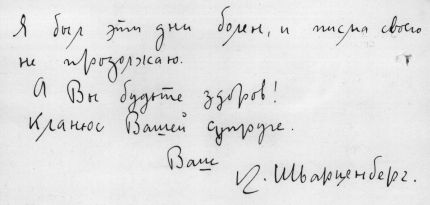 Я был эти дни болен, и писма своего
не продолжаю.
А Вы будьте здоров!
Кланюс Вашей супруге.
Ваш
К. Шварценберг.